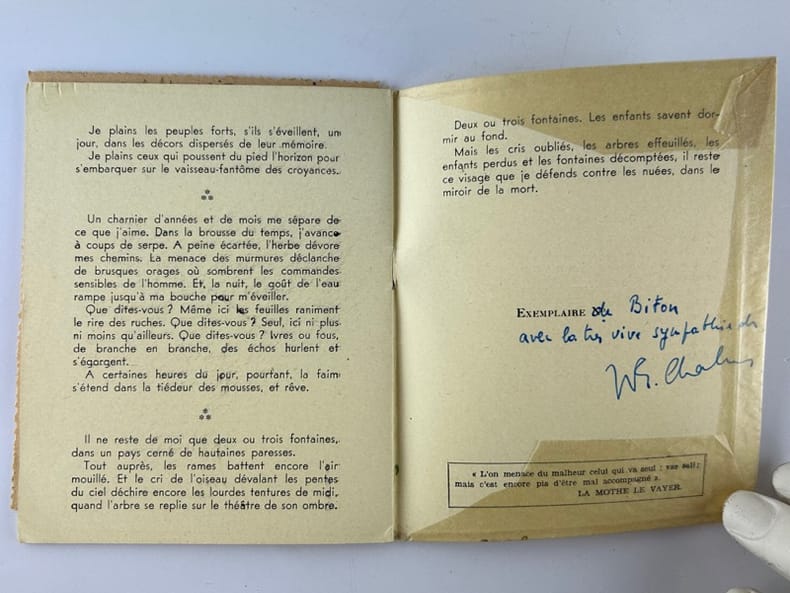 Je plains les peuples forts, s'ils s'éveillent, un
jour, dans les décors dispersés de leur mémoire.
Je plains ceux qui poussent du pied l'horizon pour
s'embarquer sur le vaisseau-fantôme des croyances.
Un charnier d'années et de mois me sépare de
ce que j'aime. Dans la brousse du temps, j'avance
à coups de serpe. A peine écartée, l'herbe dévore
mes chemins. La menace des murmures déclanche
de brusques orages où sombrent les commandes
sensibles de l'homme. Et, la nuit, le goût de l'eau
rampe jusqu'à ma bouche pour m'éveiller.
Que dites-vous ? Même ici les feuilles raniment
le rire des ruches. Que dites-vous ? Seul, ici ni plus
ni moins qu'ailleurs. Que dites-vous ? Ivres ou fous,
de branche en branche, des échos hurlent et
s'égorgent.
A certaines heures du jour, pourtant, la faim
s'étend dans la tiédeur des mousses, et rêve.
Il ne reste de moi que deux ou trois fontaines,
dans un pays cerné de hautaines paresses.
Tout auprès, les rames battent encore l'air
mouillé. Et le cri de l'oiseau dévalant les pentes
du ciel déchire encore les lourdes tentures de midi,
quand l'arbre se replie sur le théâtre de son ombre.
Deux ou trois fontaines. Les enfants savent dor-
mir au fond.
Mais les cris oubliés, les arbres effeuillés, les
enfants perdus et les fontaines décomptées, il reste
ce visage que je défends contre les nuées, dans le
miroir de la mort.
EXEMPLAIRE de Biton
avec la très vive sympathie de
« L'on menace du malheur celui qui va seul : vae soli ;
mais c'est encore pis d'être mal accompagné ».
LA MOTHE LE VAYER.